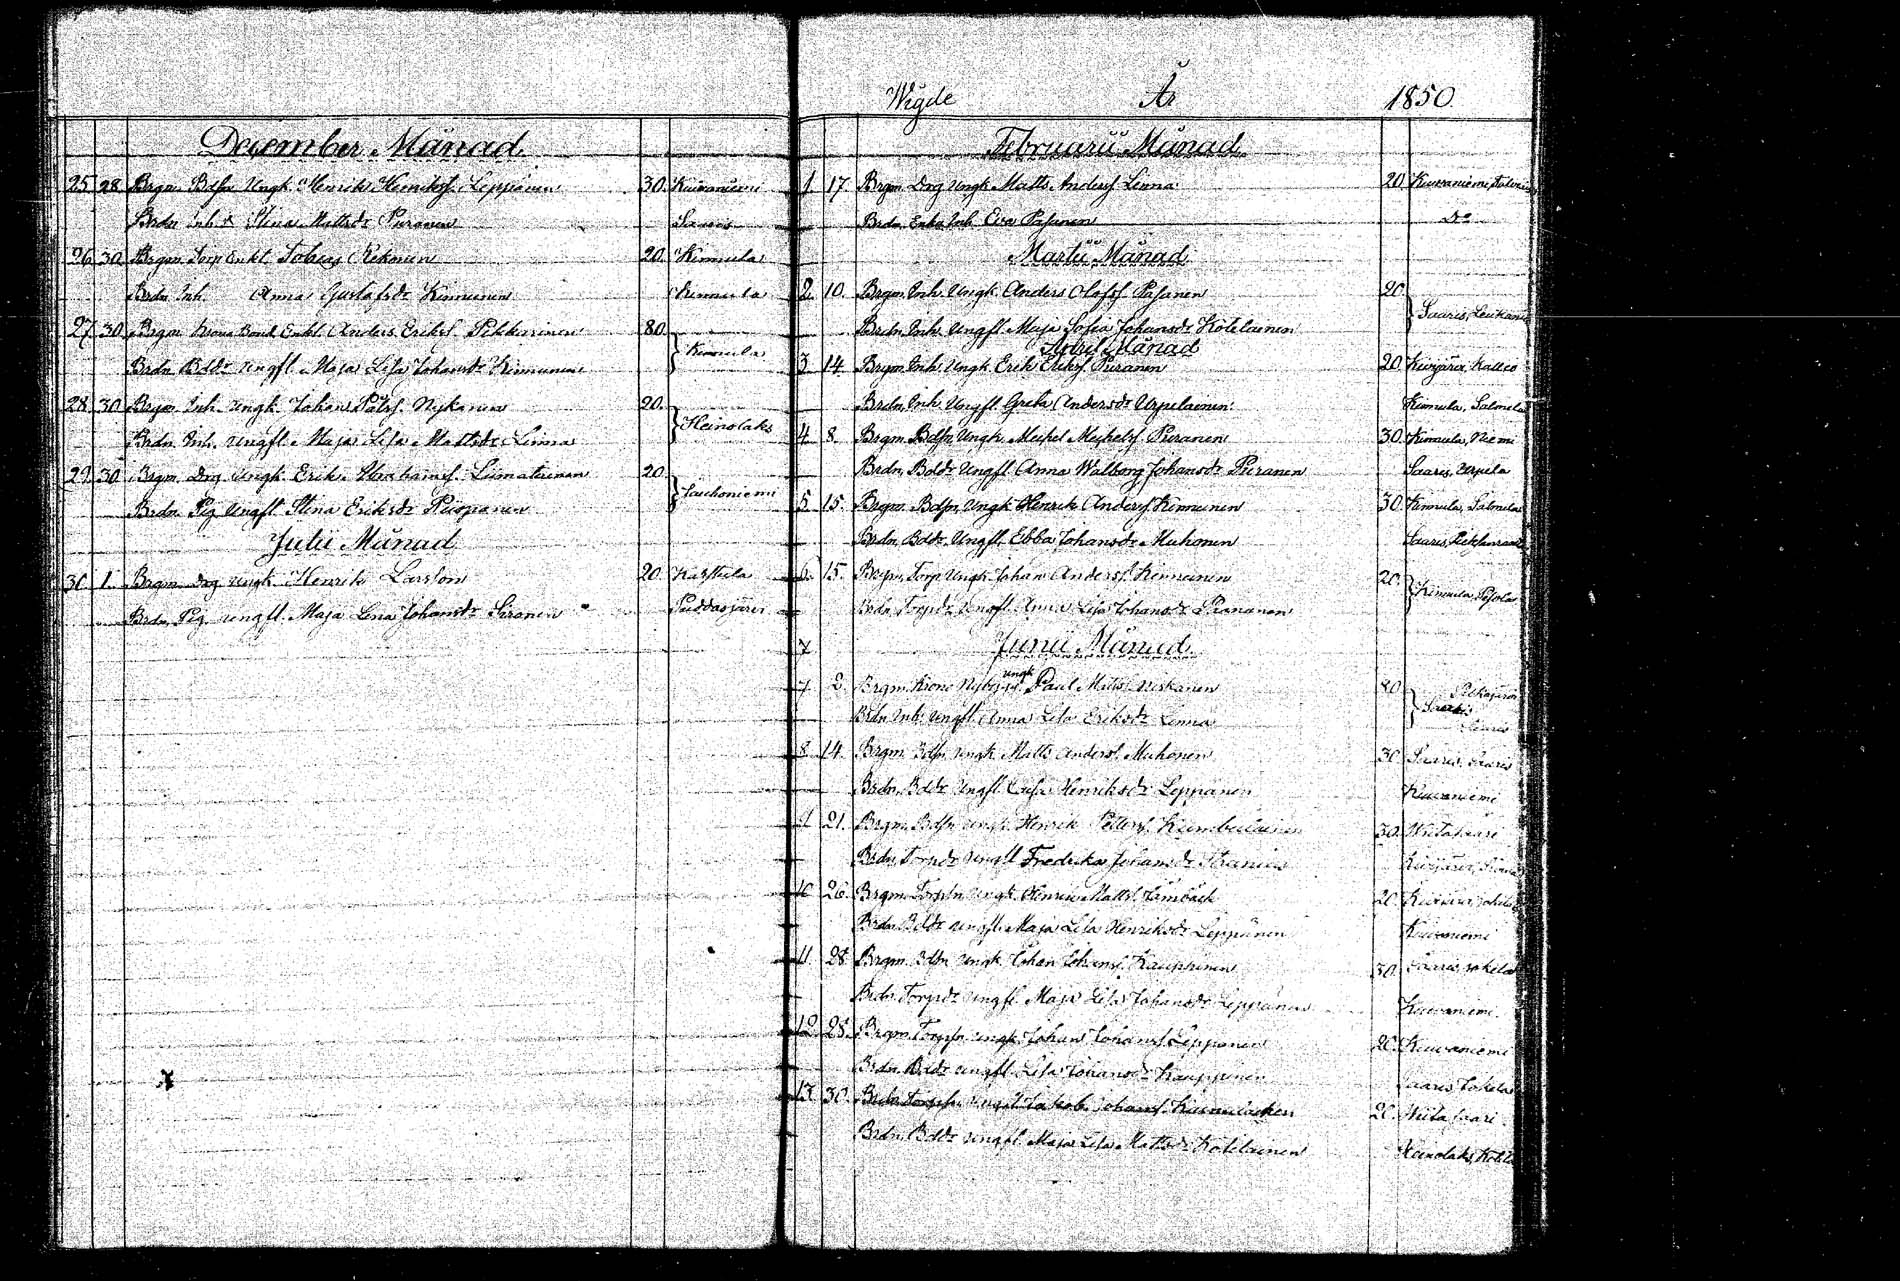 December Månad
25 28 Brgm. Bdsn Ungk. Henrik Henriksf. Leppänen 30 Kiwaniemi
Brdn Inh. d. Stina Mattsdr Puranen Saaris
26 30 Brgm. Torp Enkl. Tobias Kekonen 20 Kinnula
Brdn Inh. Anna Gustafsdr Kinnunen Kinnula
27 30 Brgm Krono Bond. Enkl. Anders Eriksf. Pekkarinen 80
Brdn Bddr Ungfl. Maja Lisa Johansdr Kinnunen Kinnula
28 30 Brgm Inh. Ungk. Johan Nykänen 20
Brdn Inh. Ungfl. Maja Lisa Mattsdr Linna Heinolaks
29 30 Brgm. Drg Ungk. Erik Liimatainen 20
Brdn Pig Ungfl. Stina Eriksdr Piispanen
Julii Månad
30 1. Brgm. Drg Ungk. Henrik Larsson 20 Karstula
Brdn, Pig Ungfl. Maja Lena Johansdr Siranen Puddasjärvi
Wigde År 1850
Februarii Månad
1 17. Brgm. Drg Ungk. Matts Andersf. Linna 20 Kiwaniemi,
Brdn, Enka Inh. Eva Pasanen Do
Martii Månad
2 10. Brgm. Inh. Ungk. Anders Olofsf. Pasanen 20
Brdn, Inh. Ungfl. Maja Sofia Johansdr Kotelainen Saaris,
April Månad
3 14 Brgm. Inh. Ungk. Erik Eriksf. Puranen 20 Kivijärvi, Kallio
Brdn, Inh. Ungfl. Greta Andersdr Urpelainen Kinnula, Salmela
4 8. Brgm. Bdsn, Ungk. Mickel Mickelsf. Puranen 30 Kinnula, Niemi
Brdn, Bddr Ungfl. Anna Walborg Johansdr Puranen Saaris, Urpila
5 15. Brgm. Bdsn, Ungk. Henrik Andersf. Kinnunen 30 Kinnula, Salmela
Brdn, Bddr Ungfl. Ebba Johansdr Muhonen Saaris,
6 15. Brgm, Torp Ungk. Johan Andersf. Kinnunen 20
Brdn Torpdr Ungfl. Anna Lisa Johansdr Kinnula,
7 Junii Månad
7. 2. Brgm. Krono Nybygg. Ungk Paul Matts. Niskanen 80
Brdn Inh. Ungfl. Anna Lisa Eriksdr Linna Saaris
8 14. Brgm. Bdsn Ungk. Matts Andersf. Muhonen 30 Saaris, Saaris
Brdn, Bddr Ungfl. Henriksdr Leppänen Kiwaniemi
9 21. Brgm. Bdsn Ungk. Henrik Petters. 30 Wiitasaari
Brdn, Torpdr Ungfl. Fredrika Johansdr Kivijärvi,
10 26. Brgm. Torpsn Ungk. Henrik Mattsf. 20 Kivijärvi,
Brdn Bddr Ungfl. Maja Lisa Henriksdr Leppänen Kiwaniemi
11. 28 Brgm. Bdsn Ungk. Johan Johansf. Kauppinen 30 Saaris, Jokela
Brdn Torpdr Ungfl. Maja Lisa Johansdr Leppänen Kiwaniemi.
12 28. Brgm. Torpsn Ungk. Johan Johansf. Leppänen 20 Kiwaniemi
Brdn Bddr Ungfl. Lisa Johansdr Kauppinen Saaris Jokela
13. 30. Brdn Torpsn Ungk. Jakob Johansf. 20 Wiitasaari.
Brdn, Bddr Ungfl. Maja Lisa Mattsdr Kotelainen Heinolaks,